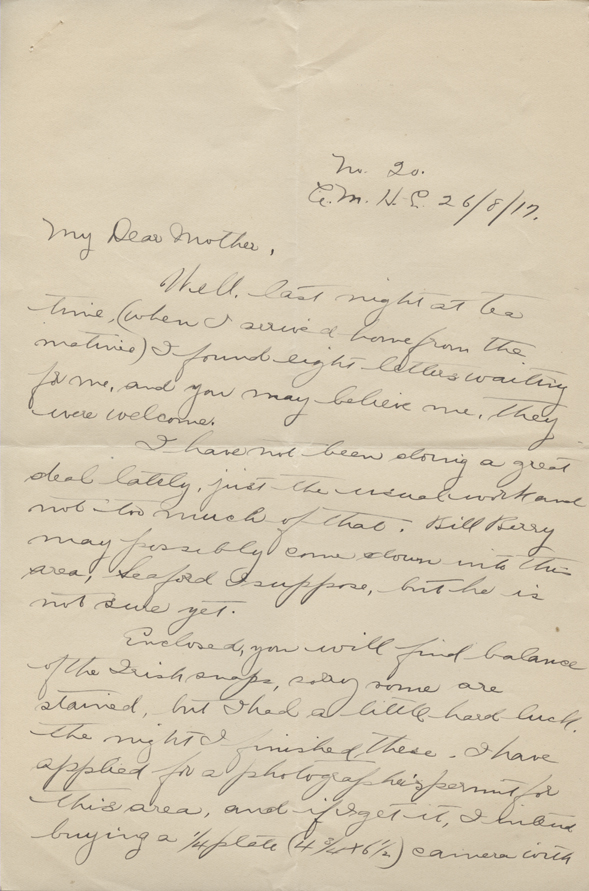 No. 20.
C.M.H.E. 26/8/17.
My Dear Mother,
Well, last night at tea
time, (when I arrived home from the
matinee) I found eight letters waiting
for me, and you may believe me, they
were welcome.
I have not been doing a great
deal lately, just the usual work and
not too much of that. Bill Berry
may possibly come down into this
area, Seaford I suppose, but he is
not sure yet.
Enclosed, you will find balance
of the Irish snaps, sorry some are
stained, but I had a little hard luck
the night I finished these. I have
applied for a photographer's permit for
this area, and if I get it, I intend
buying a ¼ plate (4¾ x 6½) camera with